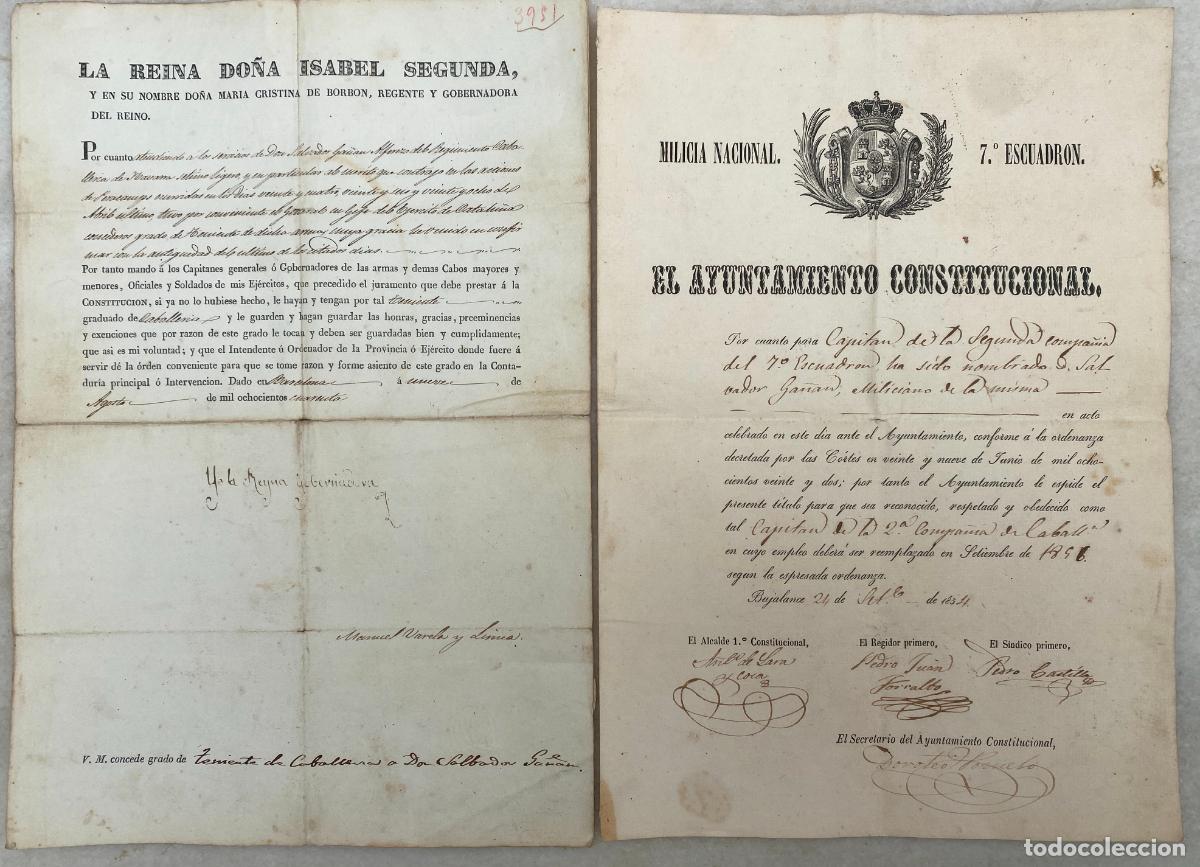 3951
LA REINA DOÑA ISABEL SEGUNDA,
Y EN SU NOMBRE DOÑA MARIA CRISTINA DE BORBON, REGENTE Y GOBERNADORA
DEL REINO.
Por cuanto atendiendo á los servicios de Don Salvador Gañan Alferez del Regimiento Caba
lleria de Navarra setimo ligero, y en particular al merito que contrajo en las acciones
de Peracamps ocurridas en los dias veinte y cuatro, veinte y seis y veinte y ocho de
Abril ultimo, tuvo por conveniente el General en Gefe del Ejercito de Cataluña
concederos grado de Teniente de dicha arma; cuya gracia he venido en confir
mar con la antigüedad del ultimo de los citados dias.
Por tanto mando á los Capitanes generales ó Gobernadores de las armas y demas Cabos mayores y
menores, Oficiales y Soldados de mis Ejércitos, que precedido el juramento que debe prestar á la
CONSTITUCION, si ya no lo hubiese hecho, le hayan y tengan por tal teniente
graduado de Caballeria y le guarden y hagan guardar las honras, gracias, preeminencias
y exenciones que por razon de este grado le tocan y deben ser guardadas bien y cumplidamente;
que asi es mi voluntad; y que el Intendente ó Ordenador de la Provincia ó Ejército donde fuere á
servir dé la órden conveniente para que se tome razon y forme asiento de este grado en la Conta-
duría principal ó Intervencion. Dado en Barcelona á nueve de
Agosto de mil ochocientos cuarenta
Yo la Reyna Gobernadora
Manuel Varela y Limia
V. M. concede grado de Teniente de Caballeria a Don Salbador Gañan
MILICIA NACIONAL. 7.º ESCUADRON.
EL AYUNTAMIENTO CONSTITUCIONAL.
Por cuanto para Capitan de la Segunda compañia
del 7º Escuadron ha sido nombrado D. Sal
vador Gañan, Miliciano de la misma
en acto
celebrado en este dia ante el Ayuntamiento, conforme á la ordenanza
decretada por las Córtes en veinte y nueve de Junio de mil ocho-
cientos veinte y dos; por tanto el Ayuntamiento le espide el
presente título para que sea reconocido, respetado y obedecido como
tal Capitan de la 2.ª Compañia de Caball.ª
en cuyo empleo deberá ser reemplazado en Setiembre de 1856
segun la espresada ordenanza.
Bujalance 24 de Set.e de 1854.
El Alcalde 1.º Constitucional, El Regidor primero, El Síndico primero,
de Lara Pedro Juan Pedro Castilla
y Coca Torralbo
El Secretario del Ayuntamiento Constitucional,
Doroteo
todocoleccion